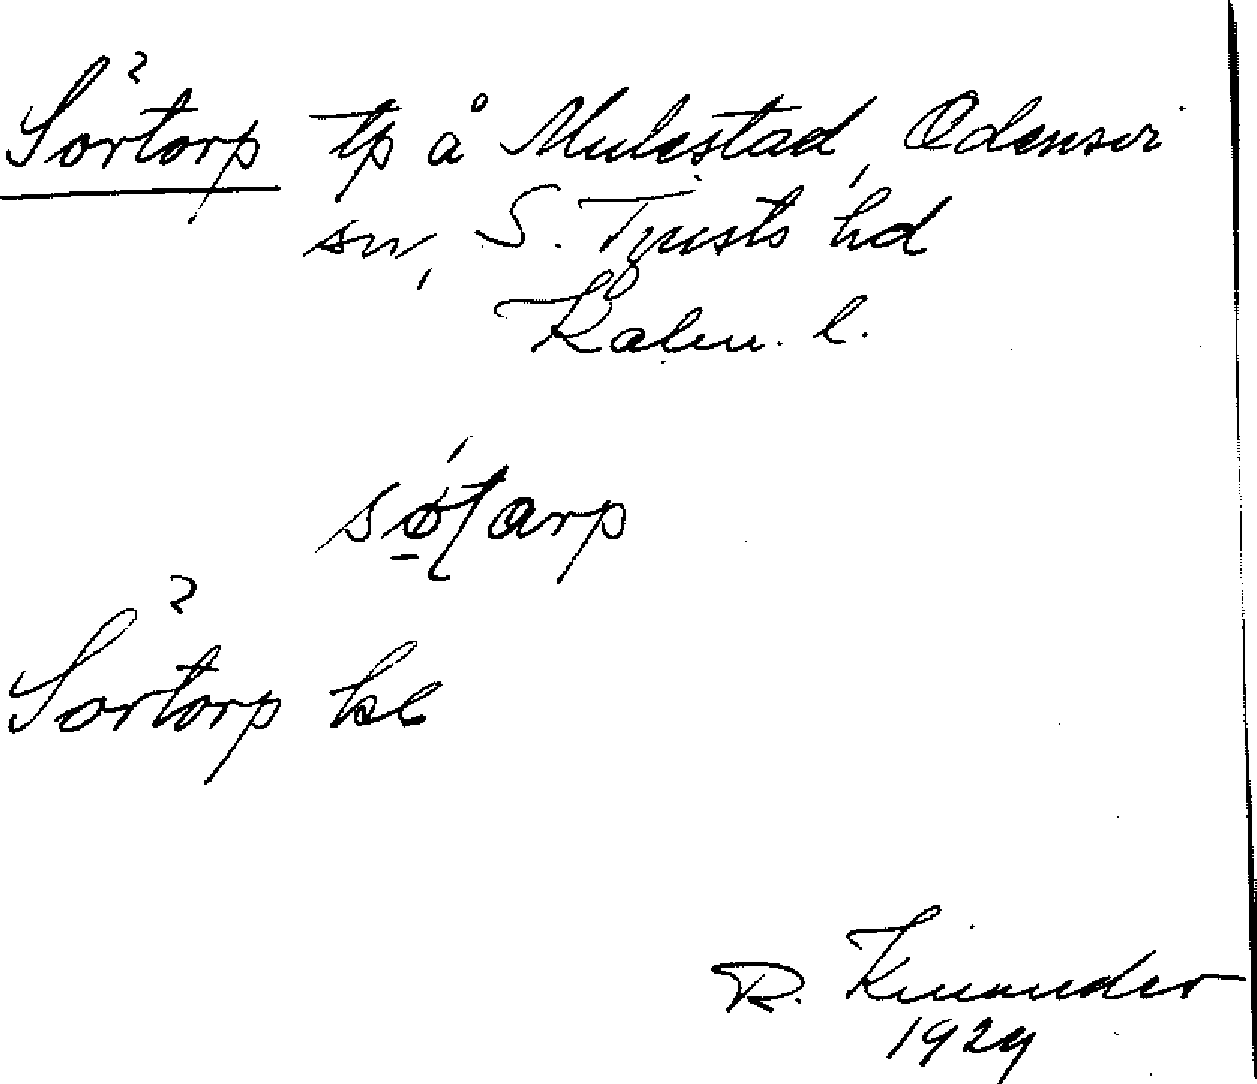 Sörtorp tp å Mulestad, Odensvi
sn, S. Tjusts hd
Kalm. l.
søtarp
Sörtorp kl
R. Kinander
1929